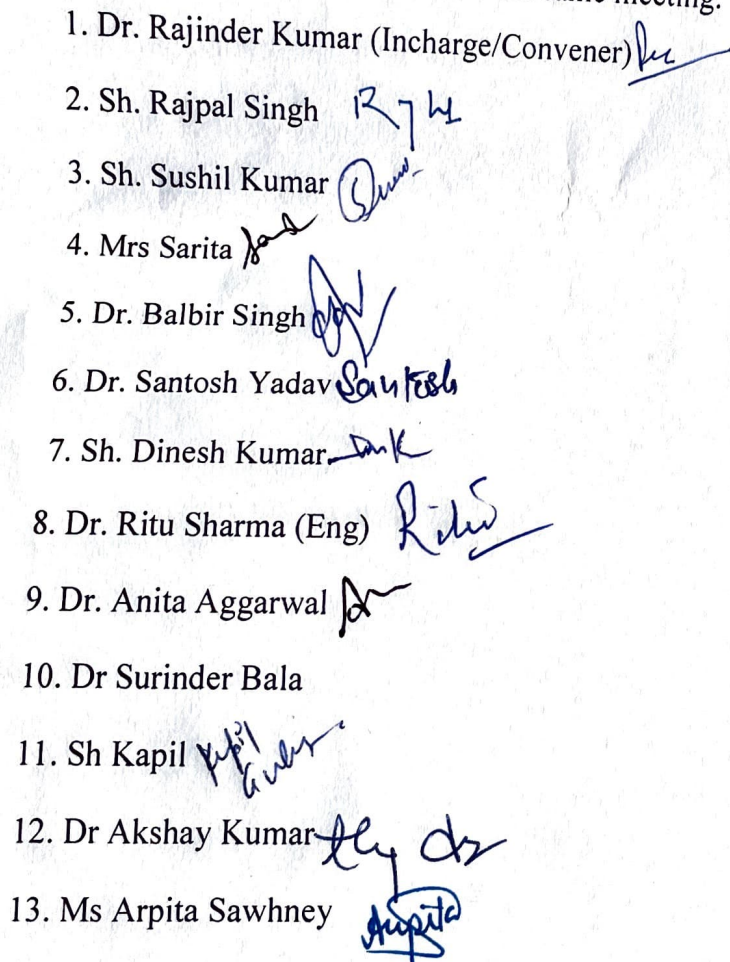 meeting.
1. Dr. Rajinder Kumar (Incharge/Convener)
2. Sh. Rajpal Singh
3. Sh. Sushil Kumar
4. Mrs Sarita
5. Dr. Balbir Singh
6. Dr. Santosh Yadav Santosh
7. Sh. Dinesh Kumar
8. Dr. Ritu Sharma (Eng) Ritu
9. Dr. Anita Aggarwal
10. Dr Surinder Bala
11. Sh Kapil Kapil
12. Dr Akshay Kumar
13. Ms Arpita Sawhney Arpita